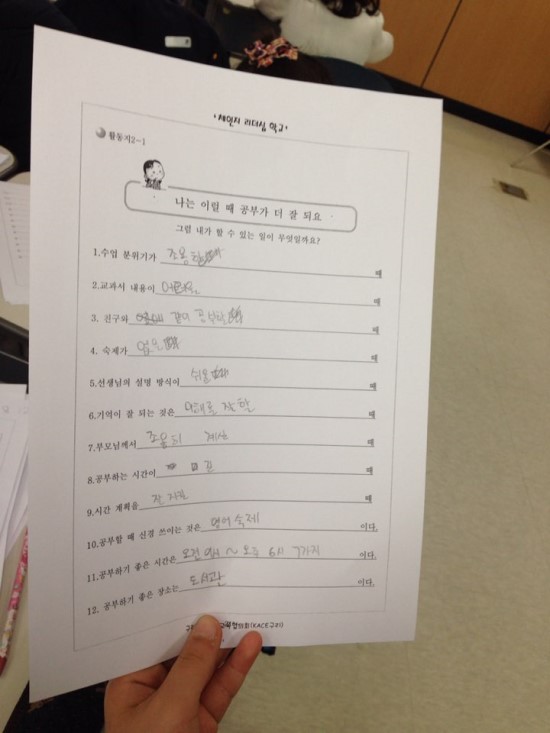 '세인시 리더십 학교'
활동지2-1
나는 이럴 때 공부가 더 잘 되요
그럼 내가 할 수 있는 일이 무엇일까요?
1.수업 분위기가 조용할 때
2.교과서 내용이 때
3. 친구와 같이 공부할 때
4. 숙제가 없을 때
5.선생님의 설명 방식이 쉬울 때
6.기억이 잘 되는 것은 이해를 잘할 때
7.부모님께서 조용히 계실 때
8.공부하는 시간이 때
9.시간 계획을 잘 때
10.공부할 때 신경 쓰이는 것은 영어숙제 이다.
11.공부하기 좋은 시간은 오전 ~ 오후 6시 까지 이다.
12. 공부하기 좋은 장소는 도서관 이다.
(KACE구리)